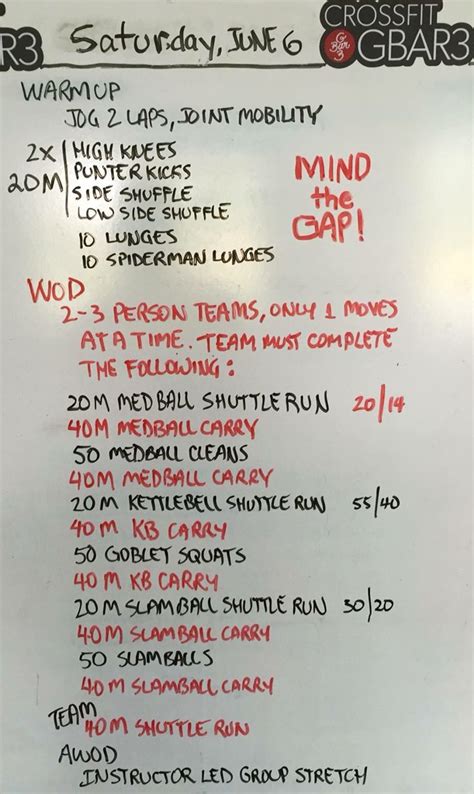 R3
Saturday, JUNE 6
CROSSFIT
GBAR3
G
BAR
3
WARMUP
JOG 2 LAPS, JOINT MOBILITY
2X HIGH KNEES
20M PUNTER KICKS
SIDE SHUFFLE
LOW SIDE SHUFFLE
10 LUNGES
10 SPIDERMAN LUNGES
MIND
the
GAP!
WOD
2-3 PERSON TEAMS, ONLY 1 MOVES
AT A TIME. TEAM MUST COMPLETE
THE FOLLOWING:
20M MEDBALL SHUTTLE RUN 20/14
40M MEDBALL CARRY
50 MEDBALL CLEANS
40M MEDBALL CARRY
20M KETTLEBELL SHUTTLE RUN 55/40
40M KB CARRY
50 GOBLET SQUATS
40M KB CARRY
20M SLAMBALL SHUTTLE RUN 30/20
40M SLAMBALL CARRY
50 SLAMBALLS
40M SLAMBALL CARRY
TEAM
40M SHUTTLE RUN
AWOD
INSTRUCTOR LED GROUP STRETCH